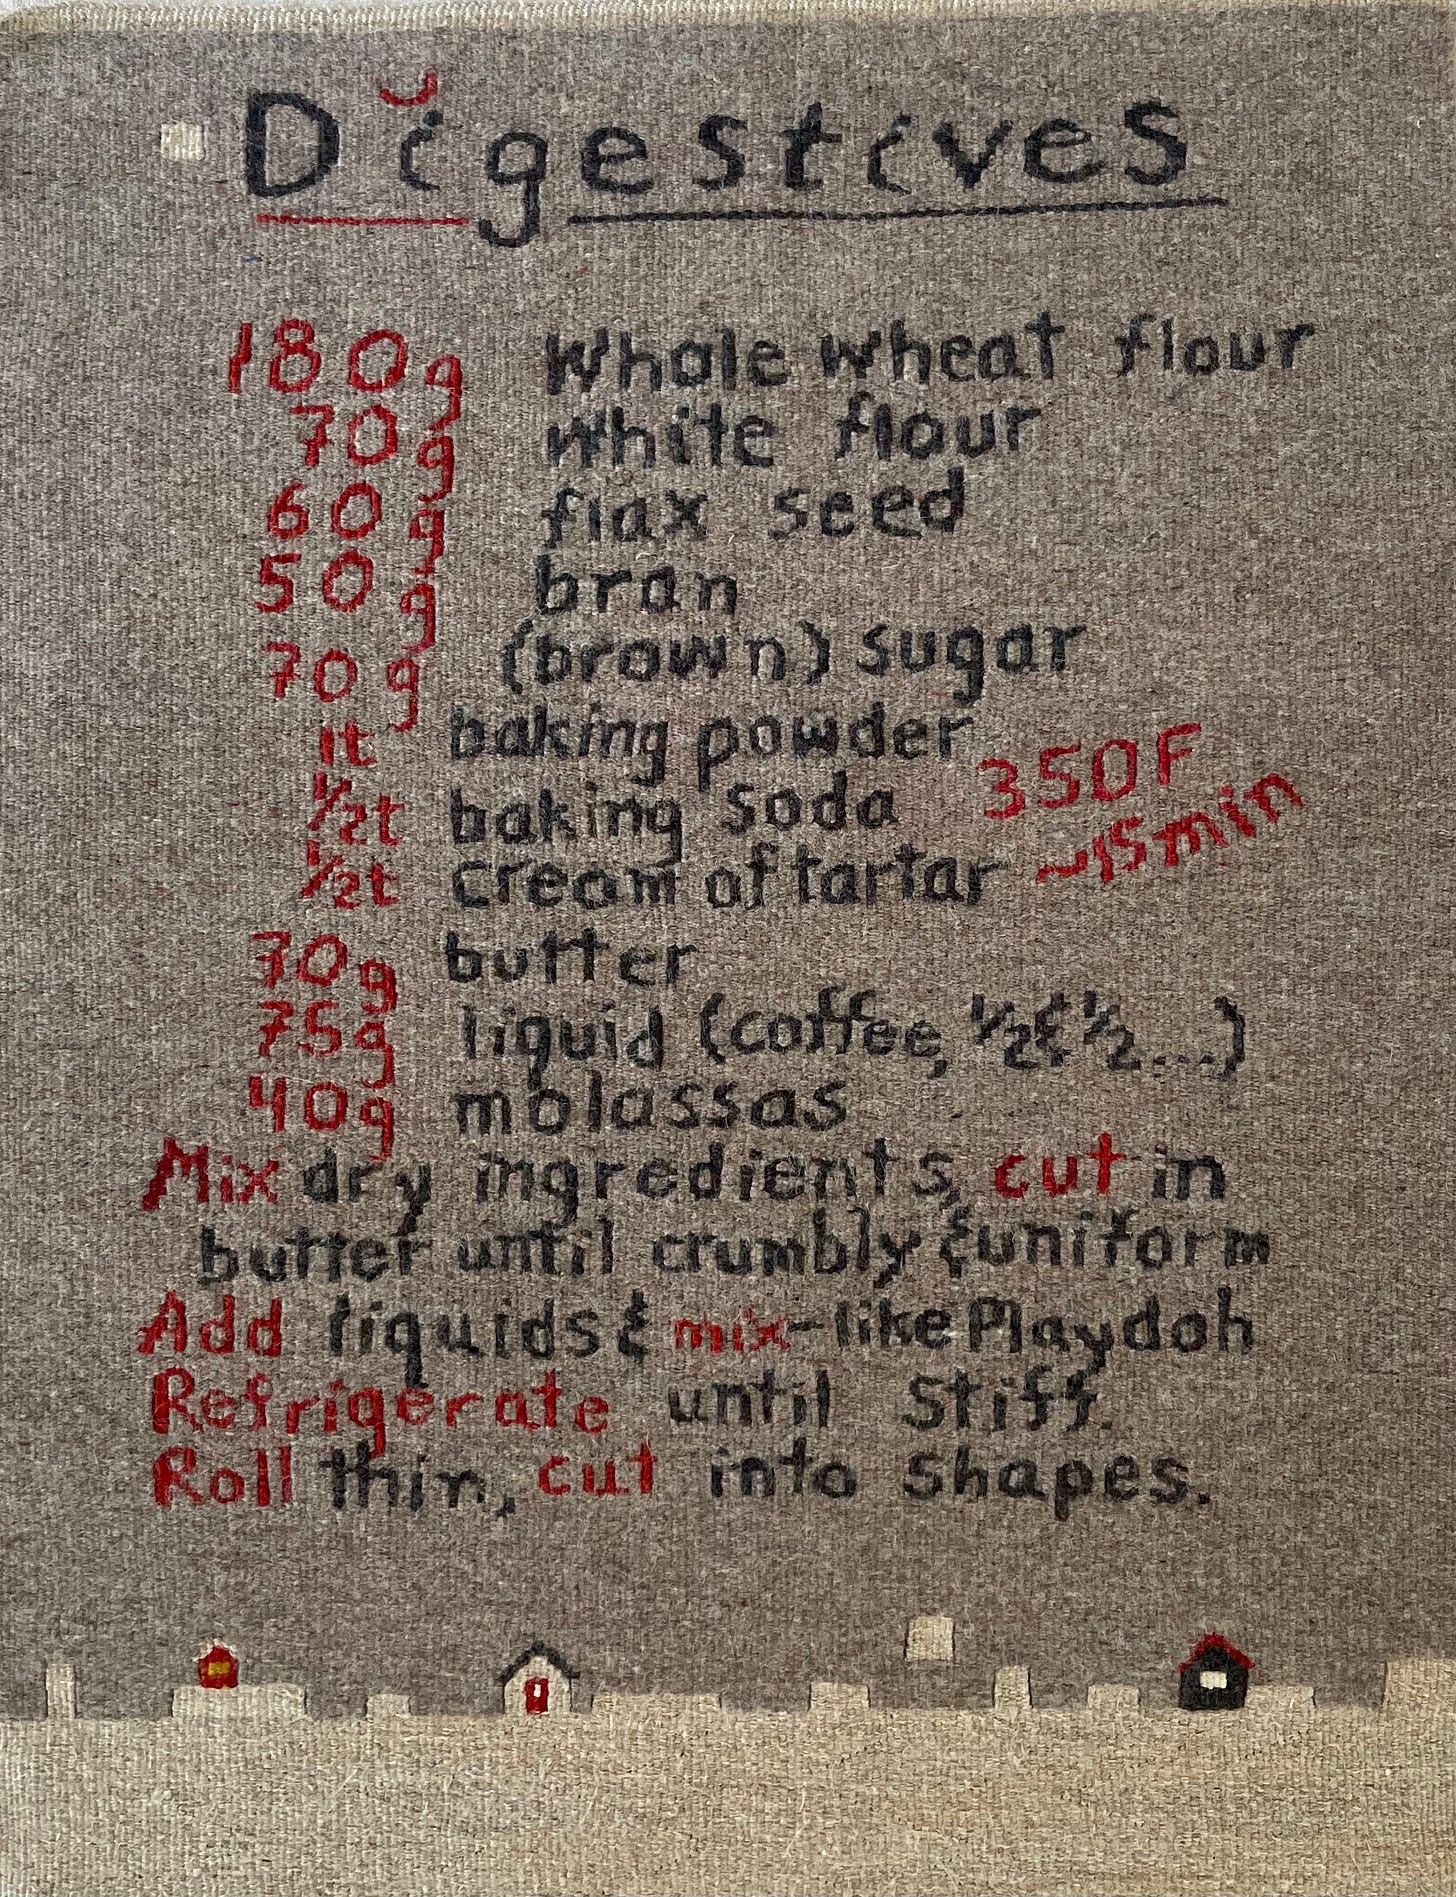 Dĭgestives
180g whole wheat flour
70g white flour
60g flax seed
50g bran
70g (brown) sugar
1t baking powder
½t baking soda
½t cream of tartar
350F
~15min
70g butter
75g liquid (coffee, ½&½...)
40g molassas
Mix dry ingredients, cut in
butter until crumbly & uniform
Add liquids & mix-like Playdoh
Refrigerate until stiff.
Roll thin, cut into shapes.